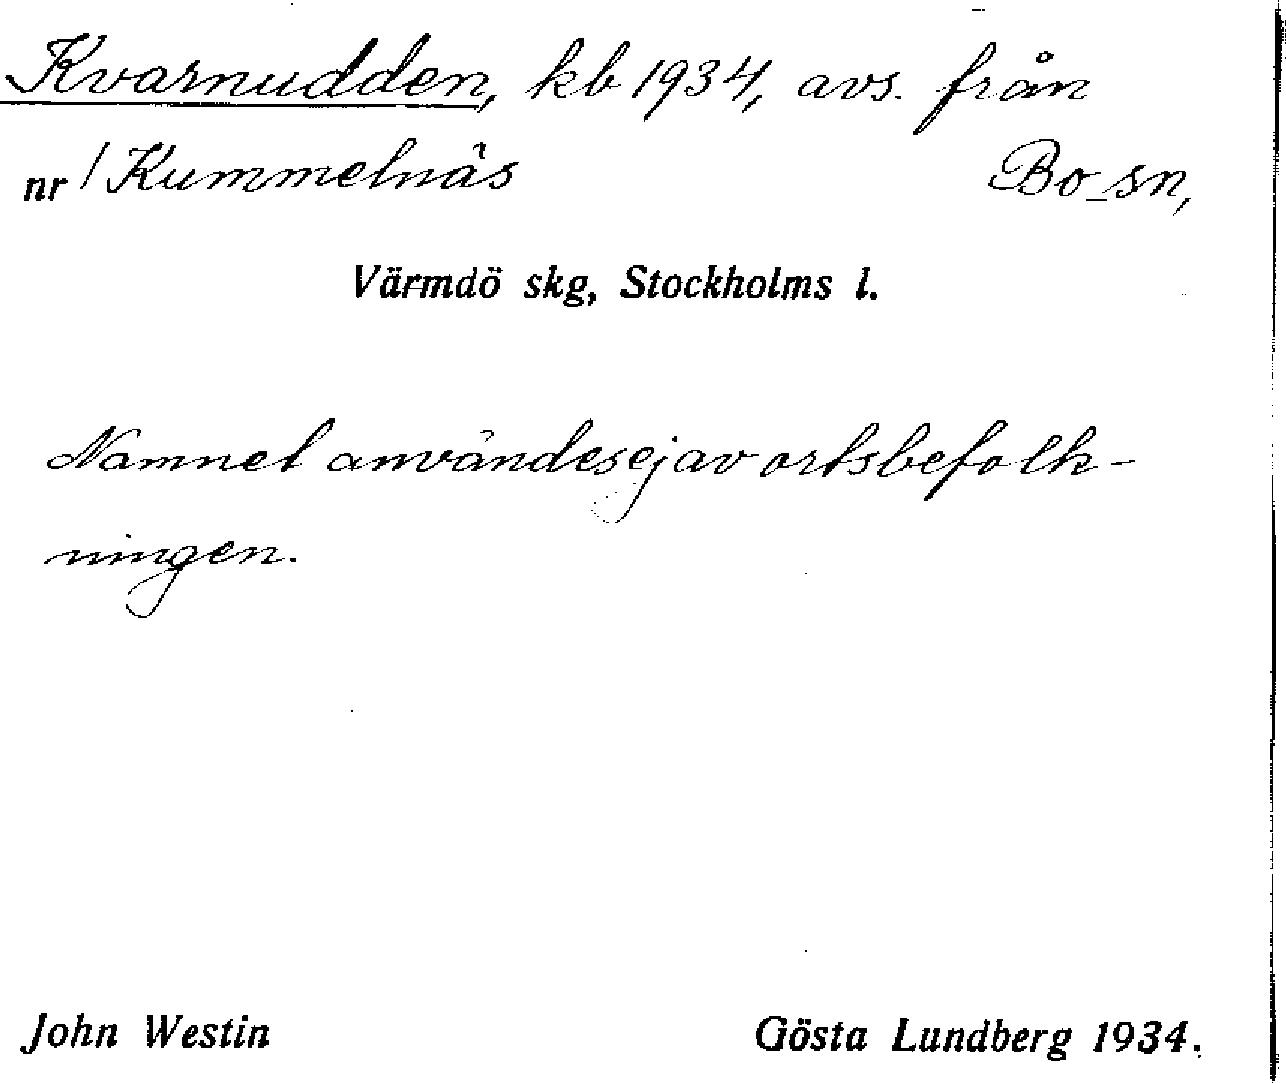 Kvarnudden, kb 1934, avs. från
nr 1 Kummelnäs Bo sn,
Värmdö skg, Stockholms l.
Namnet användes ej av ortsbefolk-
ningen.
John Westin Gösta Lundberg 1934.